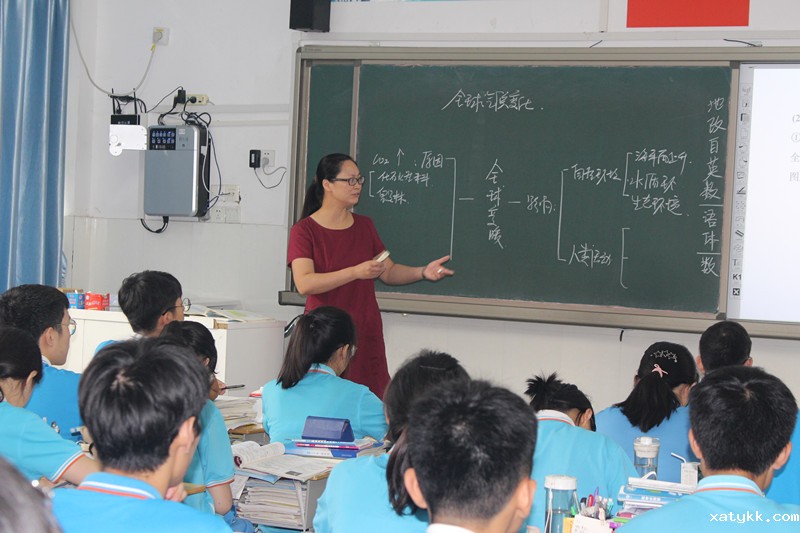 全球气候变化
CO₂↑:原因
化石燃料
毁林
全球变暖
影响:
自然环境
海平面上升
生态环境
人类活动
地改自英数
语球数
(2
①
全
图
K1
xatykk.com